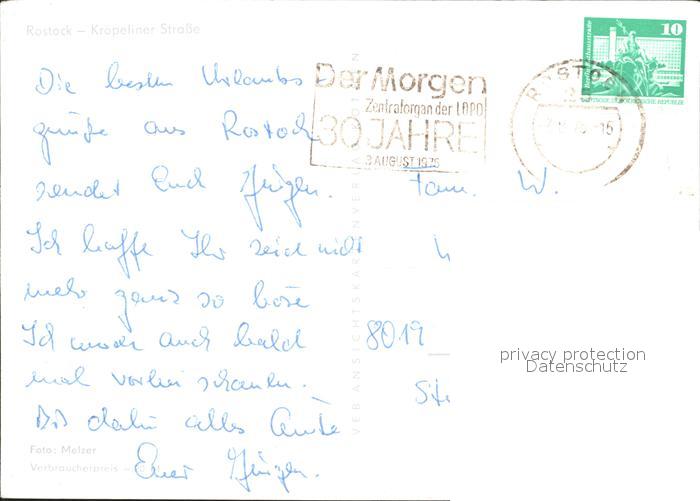 Rostock – Kröpeliner Straße
10
DEUTSCHE DEMOKRATISCHE REPUBLIK
Der Morgen
Zentralorgan der LDPD
30 JAHRE
3 AUGUST 1975
ROSTOCK
Die besten Urlaubs
grüße aus Rostock
sendet Euch Jürgen.
Ich hoffe Ihr seid nicht
mehr ganz so böse
Ich werde auch bald
mal vorbei schauen.
Bis dahin alles Gute
Euer Jürgen.
Fam. W.
8019
privacy protection
Datenschutz
Foto: Melzer
Verbraucherpreis